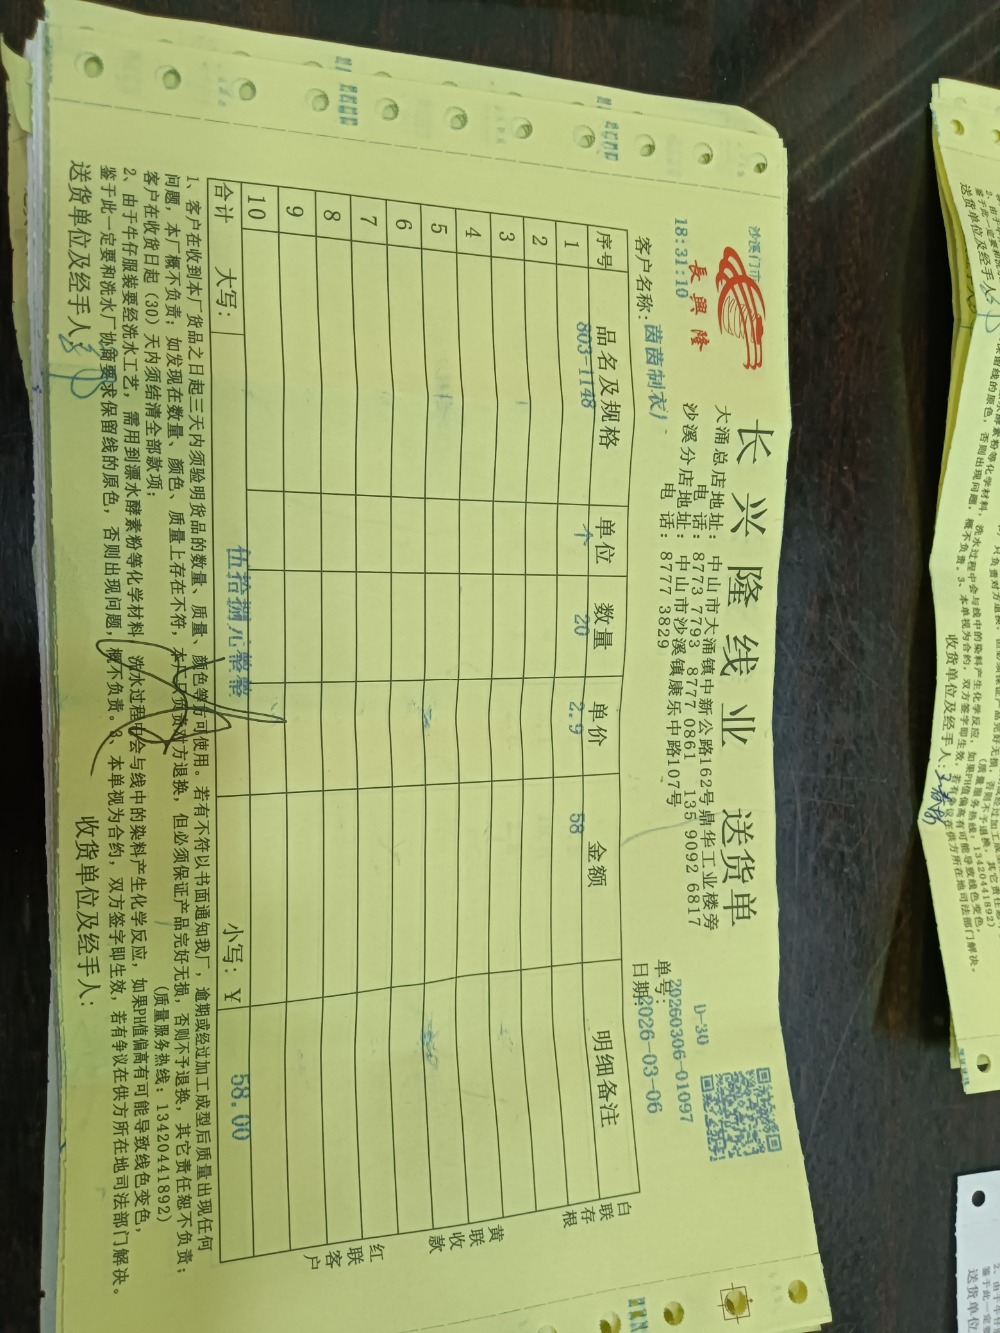 沙溪门市
長興隆
18:31:10
长兴隆线业 送货单
大涌总店地址: 中山市大涌镇中新公路162号鼎华工业楼旁
电 话: 8773 7793 8777 0861 135 9092 6817
沙溪分店地址: 中山市沙溪镇康乐中路107号
电 话: 8777 3829
D-30
单号: 20260306-01097
日期: 2026-03-06
客户名称: 茵茵制衣厂
序号 品名及规格 单位 数量 单价 金额 明细备注
1 803-1148 个 20 2.9 58
2
3
4
5
6
7
8
9
10
合计 大写: 伍拾捌元整 小写: ¥ 58.00
白联存根
黄联收款
红联客户
1、客户在收到本厂货品之日起三天内须验明货品的数量、质量、颜色等方可使用。若有不符以书面通知我厂,逾期或经过加工成型后质量出现任何
问题,本厂概不负责;如发现在数量、颜色、质量上存在不符,本厂只负责对方退换,但必须保证产品完好无损,否则不予退换,其它责任恕不负责;
客户在收货日起(30)天内须结清全部款项; (质量服务热线: 13420441892)
2、由于牛仔服装要经洗水工艺,需用到漂水酵素粉等化学材料,洗水过程中会与线中的染料产生化学反应,如果PH值偏高有可能导致线色变色,
鉴于此一定要和洗水厂协商要求保留线的原色,否则出现问题,概不负责。3、本单视为合约,双方签字即生效,若有争议在供方所在地司法部门解决。
送货单位及经手人:
收货单位及经手人: